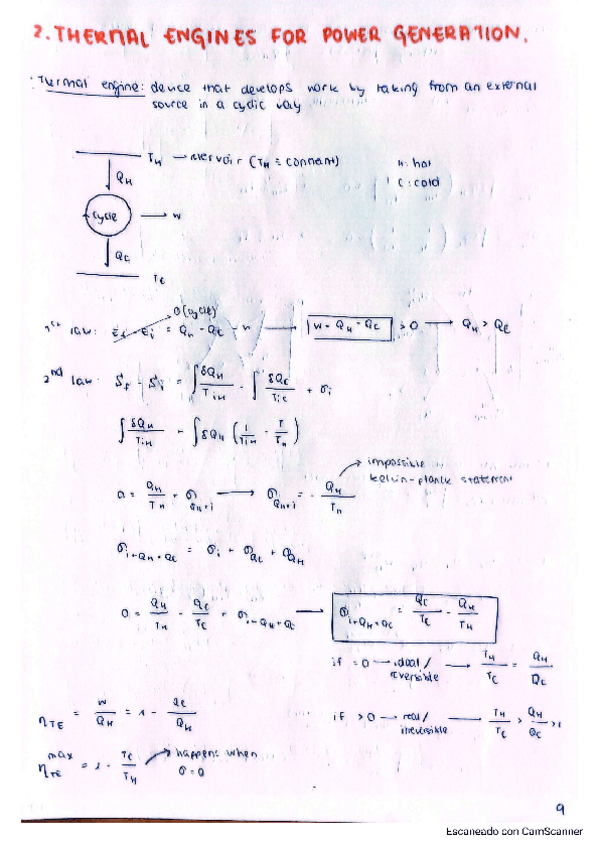 2. THERMAL ENGINES FOR POWER GENERATION.
· Thermal engine: device that develops work by taking from an external
source in a cyclic way
T_H → reservoir (T_H = constant)
H: hot
C: cold
Q_H
cycle → W
Q_C
T_C
0 (cycle)
1st law: E_f - E_i = Q_H - Q_C - W → W = Q_H - Q_C > 0 → Q_H > Q_C
2nd law: S_f - S_i = ∫ δQ_H/T_iH - ∫ δQ_C/T_iC + σ_i
∫ δQ_H/T_iH - ∫ δQ_H (1/T_iH - T/T_H)
impossible
kelvin-planck statement
0 = Q_H/T_H + σ_QH+i → σ_QH+i = - Q_H/T_H
σ_i+QH+QC = σ_i + σ_QC + σ_QH
0 = Q_H/T_H - Q_C/T_C + σ_i+QH+QC → σ_i+QH+QC = Q_C/T_C - Q_H/T_H
if = 0 → ideal/reversible → T_H/T_C = Q_H/Q_C
η_TE = W/Q_H = 1 - Q_C/Q_H
if > 0 → real/irreversible → T_H/T_C > Q_H/Q_C > 1
η_TE^max = 1 - T_C/T_H → happens when
σ = 0
9
Escaneado con CamScanner